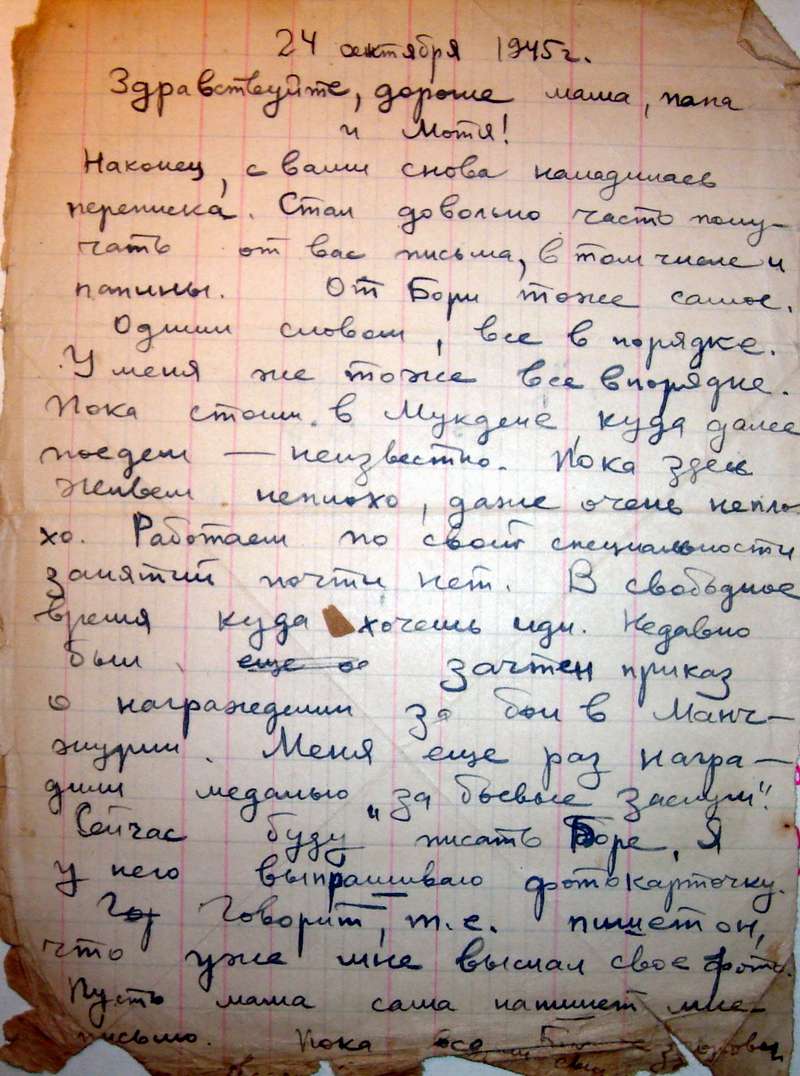 24 октября 1945 г.
Здравствуйте, дорогие мама, папа
и Мотя!
Наконец, с вами снова наладилась
переписка. Стал довольно часто полу-
чать от вас письма, в том числе и
папины. От Бори тоже самое.
Одним словом, все в порядке.
У меня же тоже все в порядке.
Пока стоим в Мукдене куда далее
поедем — неизвестно. Пока здесь
живем неплохо, даже очень непло-
хо. Работаем по своей специальности
занятий почти нет. В свободное
время куда хочешь иди. Недавно
был еще зачтен приказ
о награждении за бои в Манч-
журии. Меня еще раз награ-
дили медалью „за боевые заслуги".
Сейчас буду писать Боре, Я
у него выпрашиваю фотокарточку.
Гов Говорит, т.е. пишет он,
что уже мне выслал свое фото.
Пусть мама сама напишет мне
письмо. Пока все здоровы